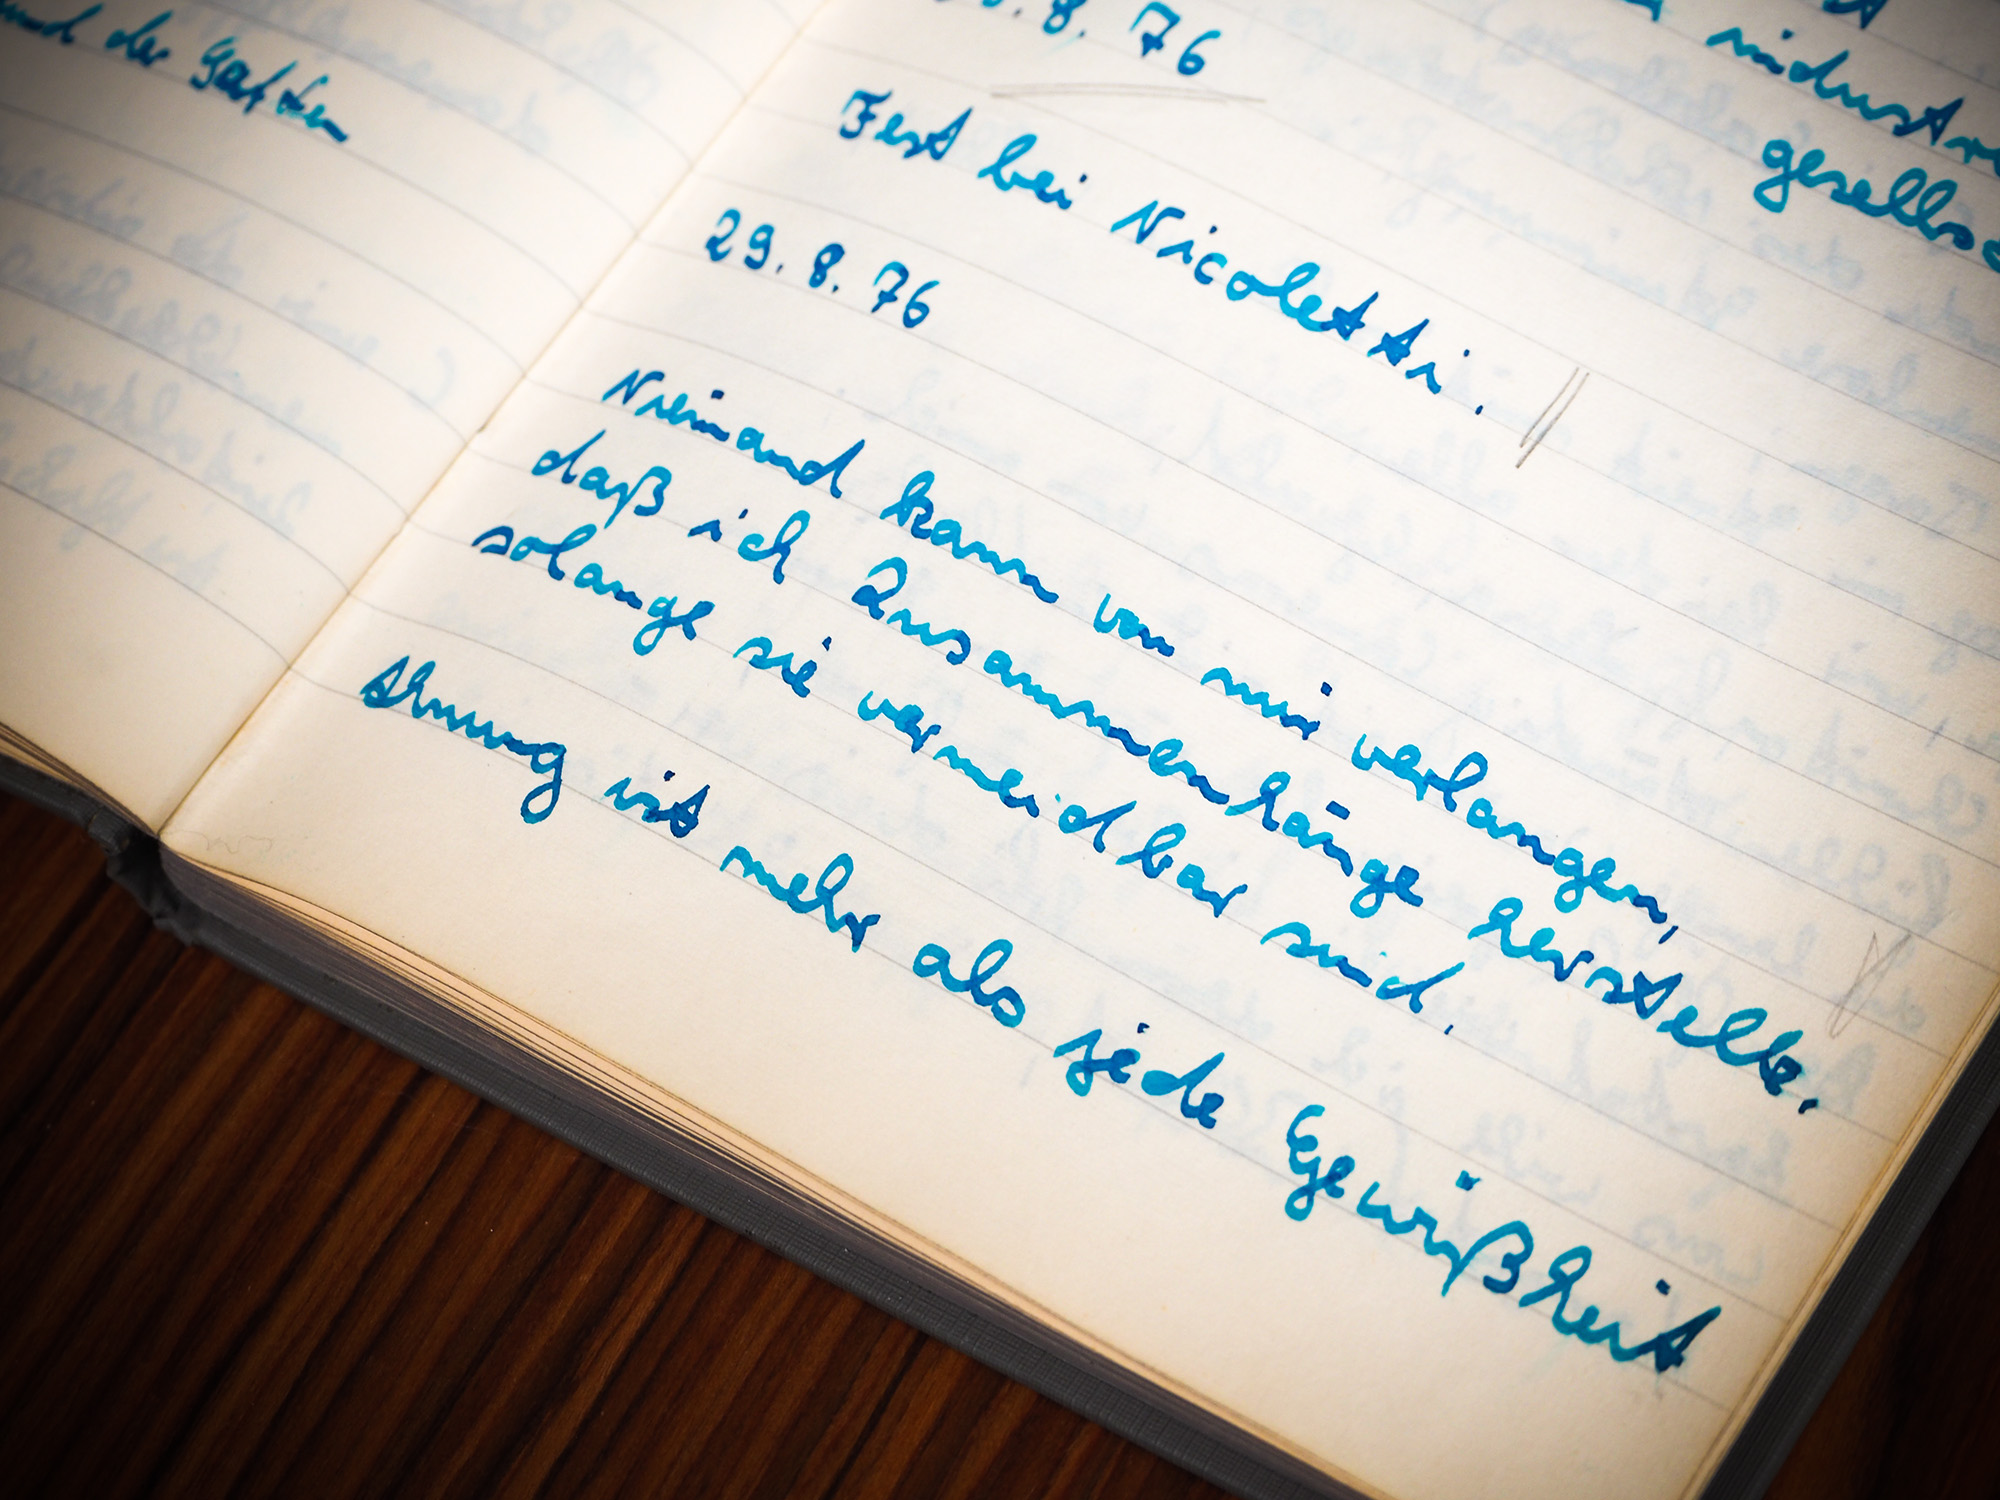 und der Gatten
industr
gesellsc
8. 76
Fest bei Nicoletti.
29. 8. 76
Niemand kann von mir verlangen,
daß ich Zusammenhänge herstelle.
solange sie vermeidbar sind.
Ahnung ist mehr als jede Gewißheit